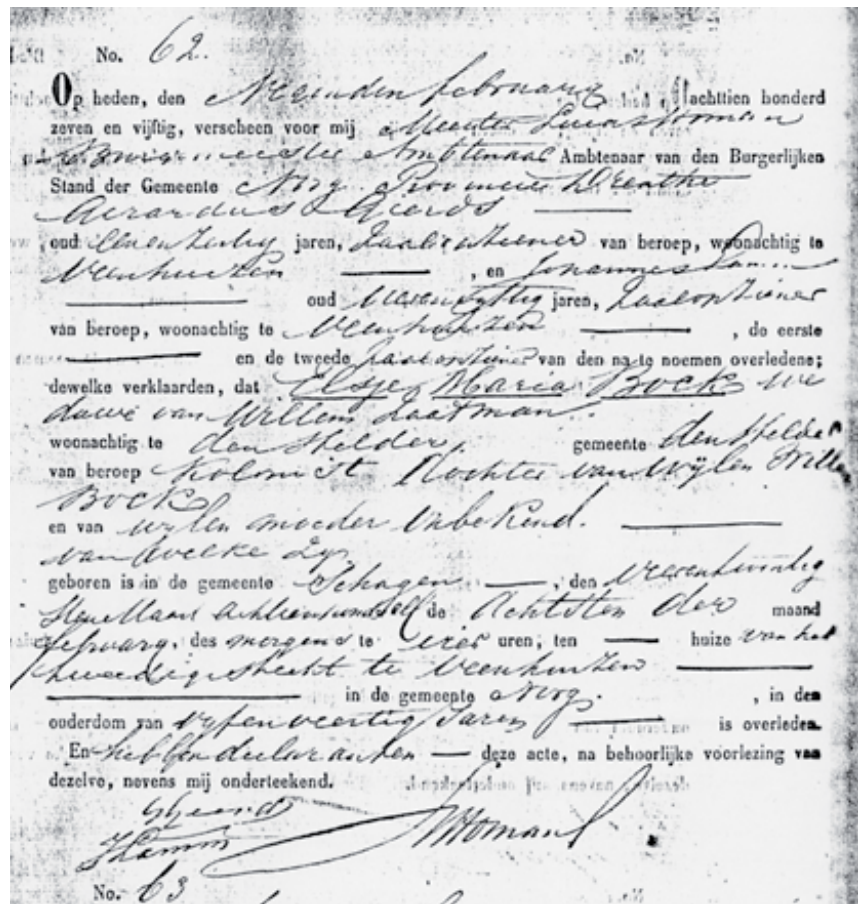 No. 62.
Op heden, den Neeenden februarij achttien honderd
zeven en vijftig, verscheen voor mij Meester Lucas Homan
Burgemeester Ambtenaar Ambtenaar van den Burgerlijken
Stand der Gemeente Norg Provincie Drenthe
Gerardus Gierds
oud eenenzestig jaren, Zaalopziener van beroep, woonachtig te
Veenhuizen , en Johannes
oud jaren, Zaalopziener
van beroep, woonachtig te Veenhuizen , de eerste
en de tweede Zaalopziener van den na te noemen overledene;
dewelke verklaarden, dat Elsje Maria Bock we
duwe van Willem Zaatman.
woonachtig te den Helder, gemeente den Helder
van beroep Kolonist Dochter van Wijlen Willem
Bock
en van wijlen moeder onbekend.
van welke
geboren is in de gemeente Schagen , den vierentwintig
de Achtsten der maand
februarij, des morgens te vier uren, ten huize van het
tweede gesticht te Veenhuizen
in de gemeente Norg. , in den
ouderdom van vijfenveertig Jaren is overleden.
En hebben declaranten deze acte, na behoorlijke voorlezing van
dezelve, nevens mij onderteekend.
LHoman
No. 63